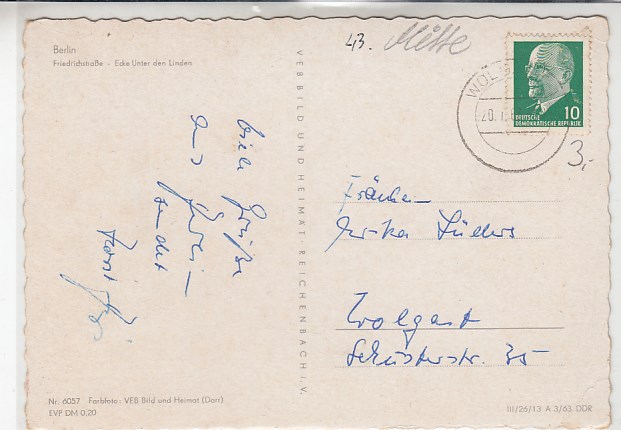 Berlin
Friedrichstraße - Ecke Unter den Linden
43. Mitte
WOLG
20.
DEUTSCHE
DEMOKRATISCHE REPUBLIK
10
3,-
VEB BILD UND HEIMAT REICHENBACH I. V.
Viele Grüße
aus Berlin
sendet
Horst
Fräulein
Lüders
Wolgast
Schusterstr. 35
Nr. 6057 Farbfoto: VEB Bild und Heimat (Darr)
EVP DM 0,20
III/26/13 A 3/63 DDR